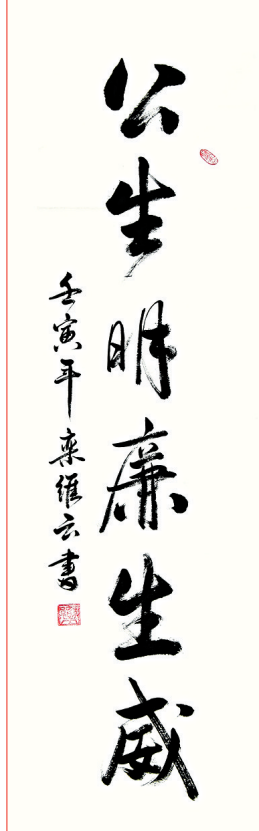 公生明廉生威
壬寅年栾维云書